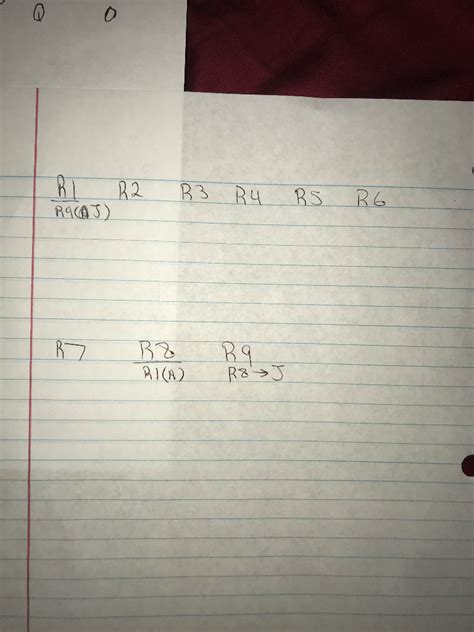 Q O
R1 R2 R3 R4 R5 R6
R9(AJ)
R7 R8 R9
R1(A) R8→J